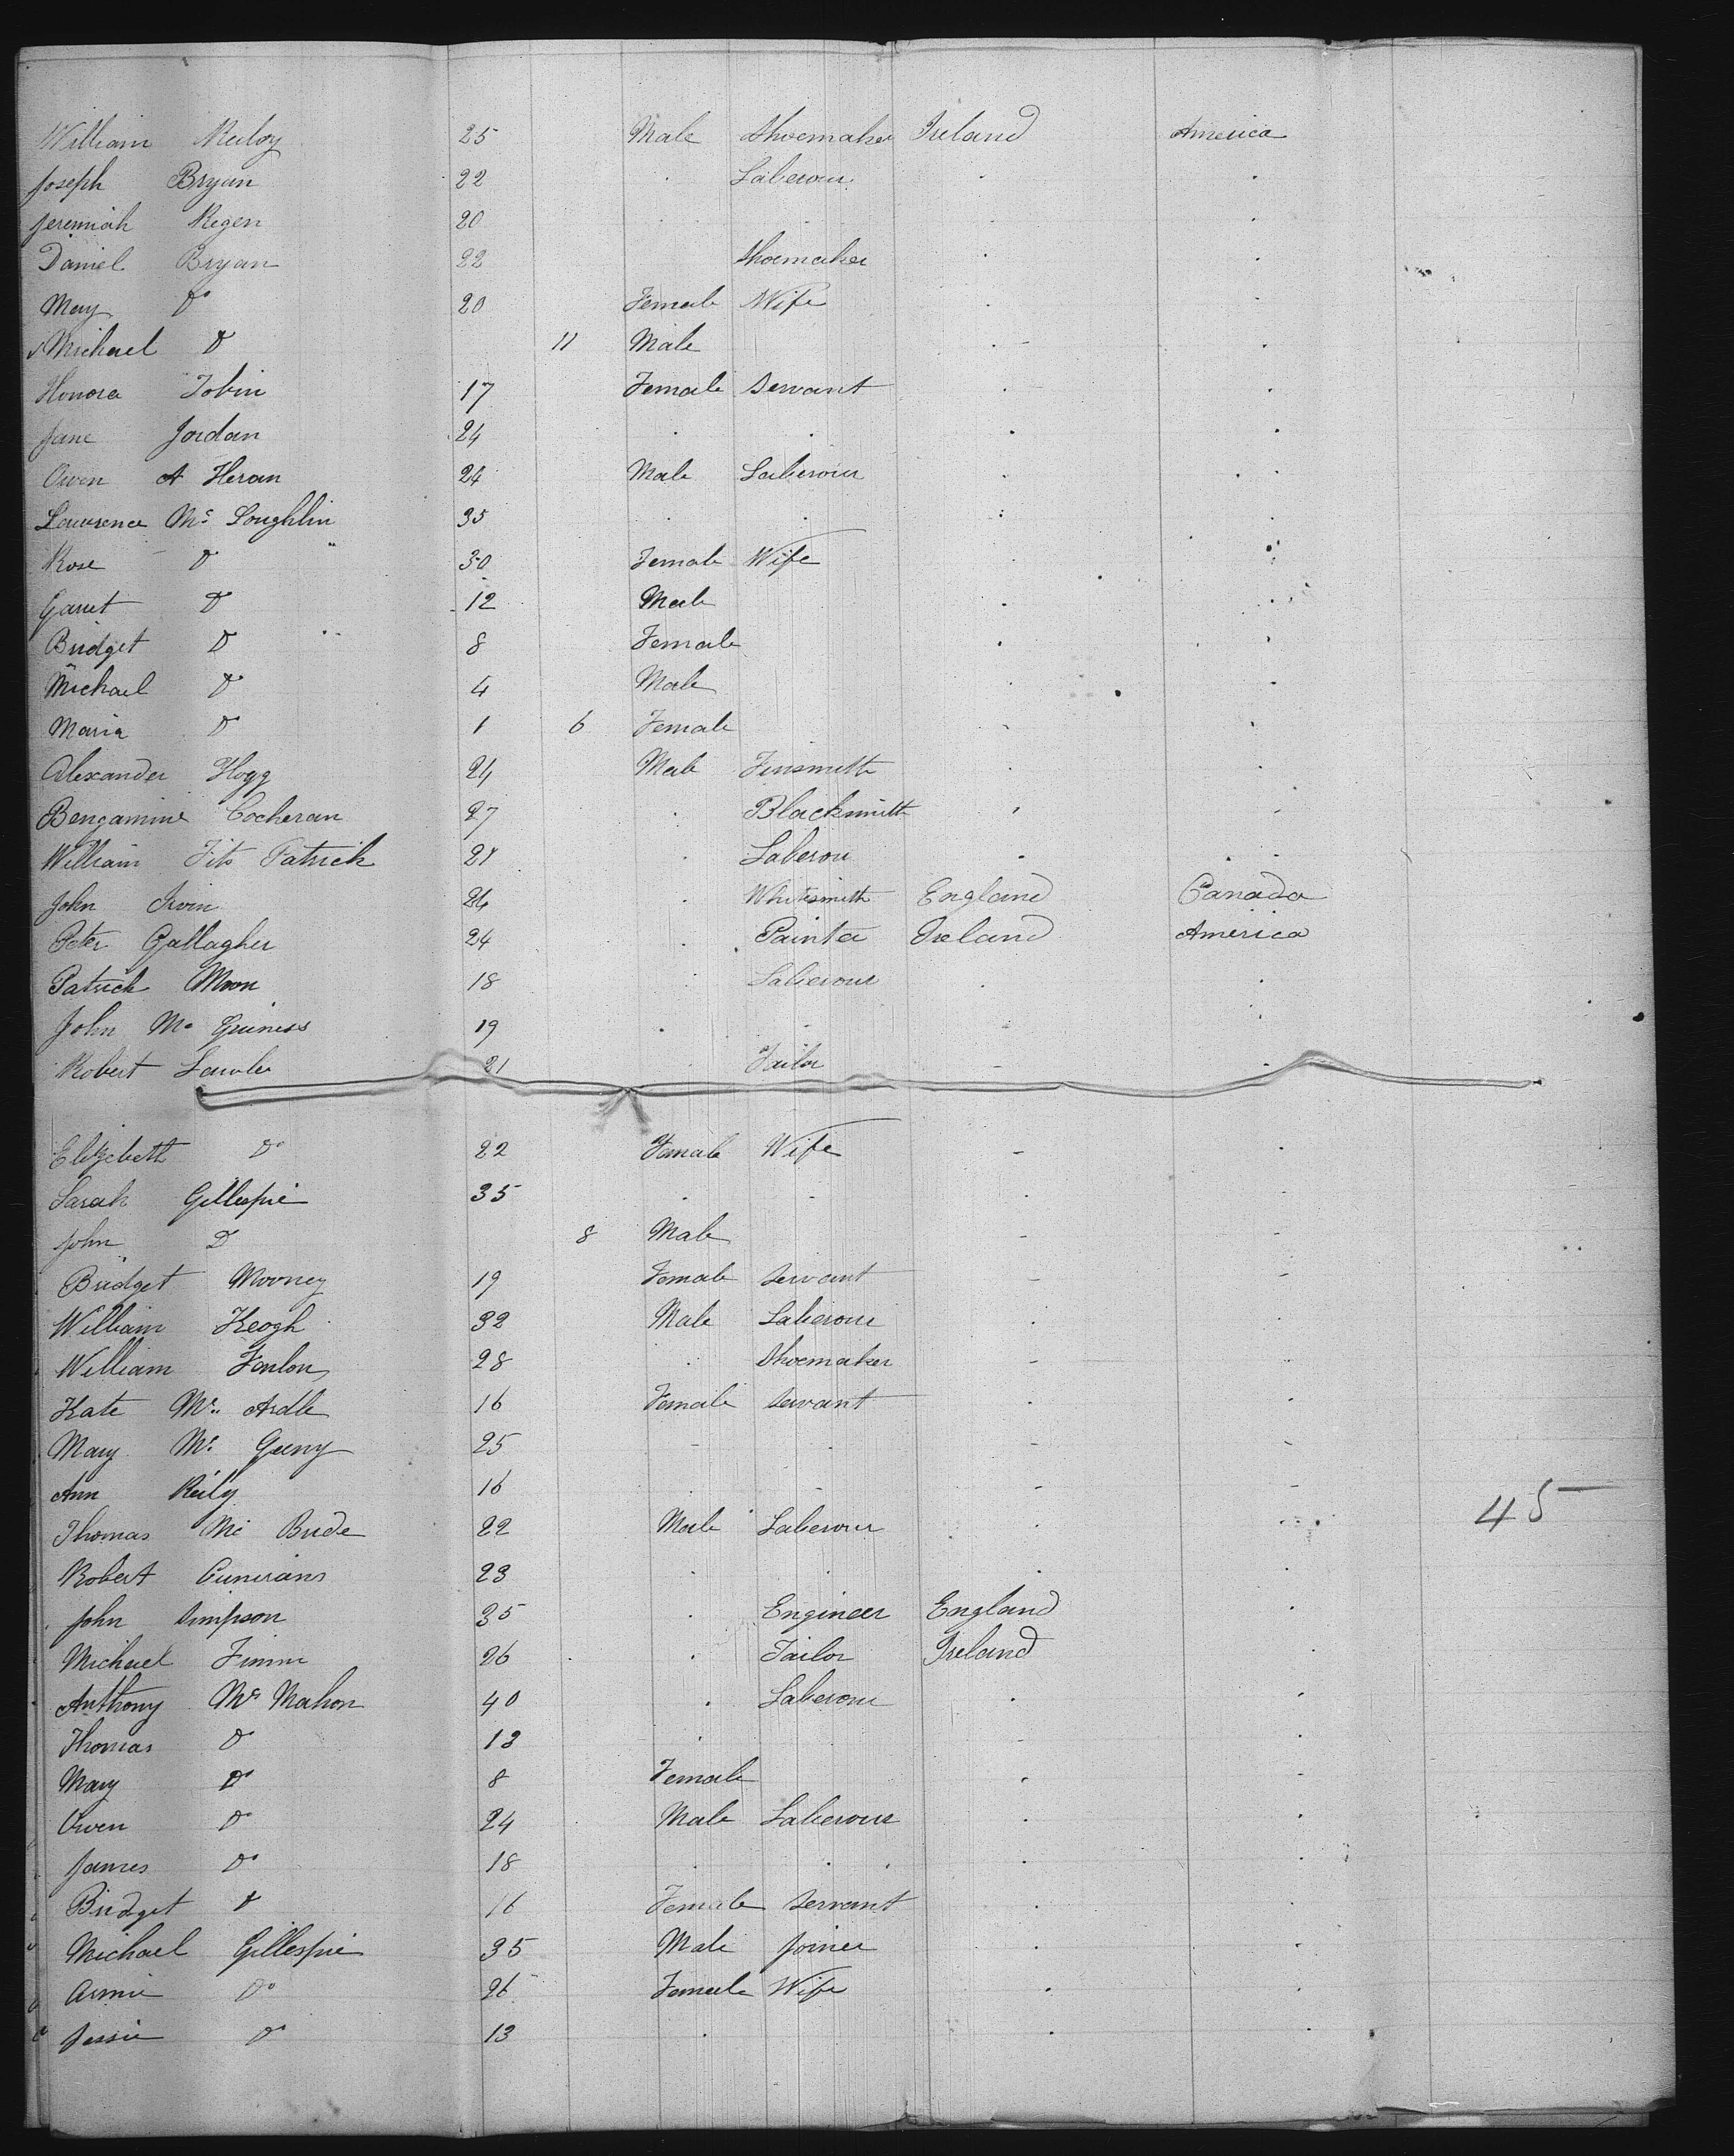 William Reiloy 25 Male Shoemaker Ireland America
Joseph Bryan 22 Laberour
Jeremiah Regen 20
Daniel Bryan 22 Shoemaker
Mary Do 20 Female Wife
Michael Do 11 Male
Honora Tobin 17 Female Servant
Jane Jordan 24
Owen A Heran 24 Male Laberour
Lawrence Mc Loughlin 35
Rose Do 30 Female Wife
Garret Do 12 Male
Bridget Do 8 Female
Michael Do 4 Male
Maria Do 1 6 Female
Alexander Hogg 24 Male Tinsmith
Bengamine Cocheran 27 Blacksmith
William Fits Patrick 21 Laberou
John Irvin 24 Whitesmith England Canada
Peter Gallagher 24 Painter Ireland America
Patrick Moon 18 Laberour
John Mc Guiness 19
Robert Lawler 21 Tailor
Elizebeth Do 22 Female Wife
Sarah Gillespie 35
John D 8 Male
Bridget Mooney 19 Female Servant
William Keogh 32 Male Laberour
William Fonlon 28 Shoemaker
Kate Mc Ardle 16 Female Servant
Mary Mc 25
Ann Reily 16
Thomas Mc Bride 22 Male Laberour 45
Robert 23
John Simpson 35 Engineer England
Michael 26 Tailor Ireland
Anthony Mc Mahon 40 Laberour
Thomas Do 13
Mary Do 8 Female
Owen Do 24 Male Laberour
James Do 18
Bridget Do 16 Female Servant
Michael Gillespie 35 Male Joiner
Annie Do 26 Female Wife
Jessie Do 13